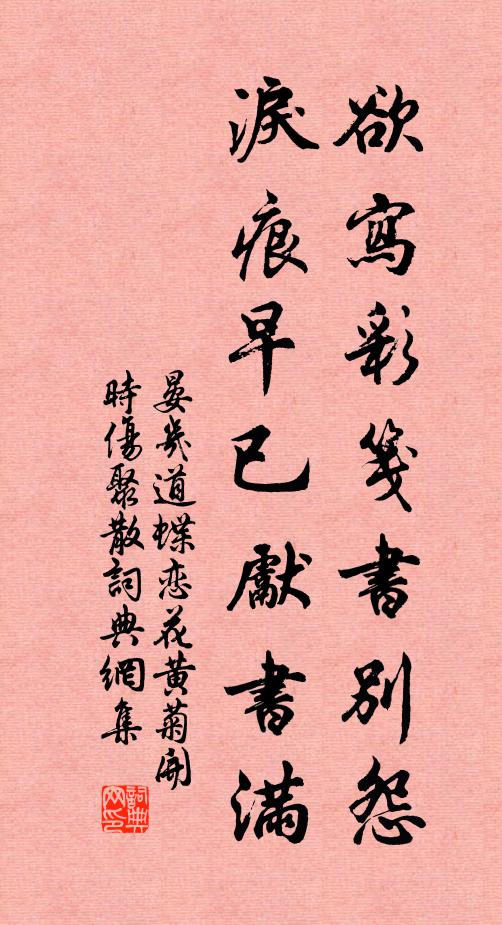 欲寫彩箋書別怨
淚痕早已獻書滿
晏幾道蝶恋花黄菊開
時傷聚散詞典網集
詞典
网印